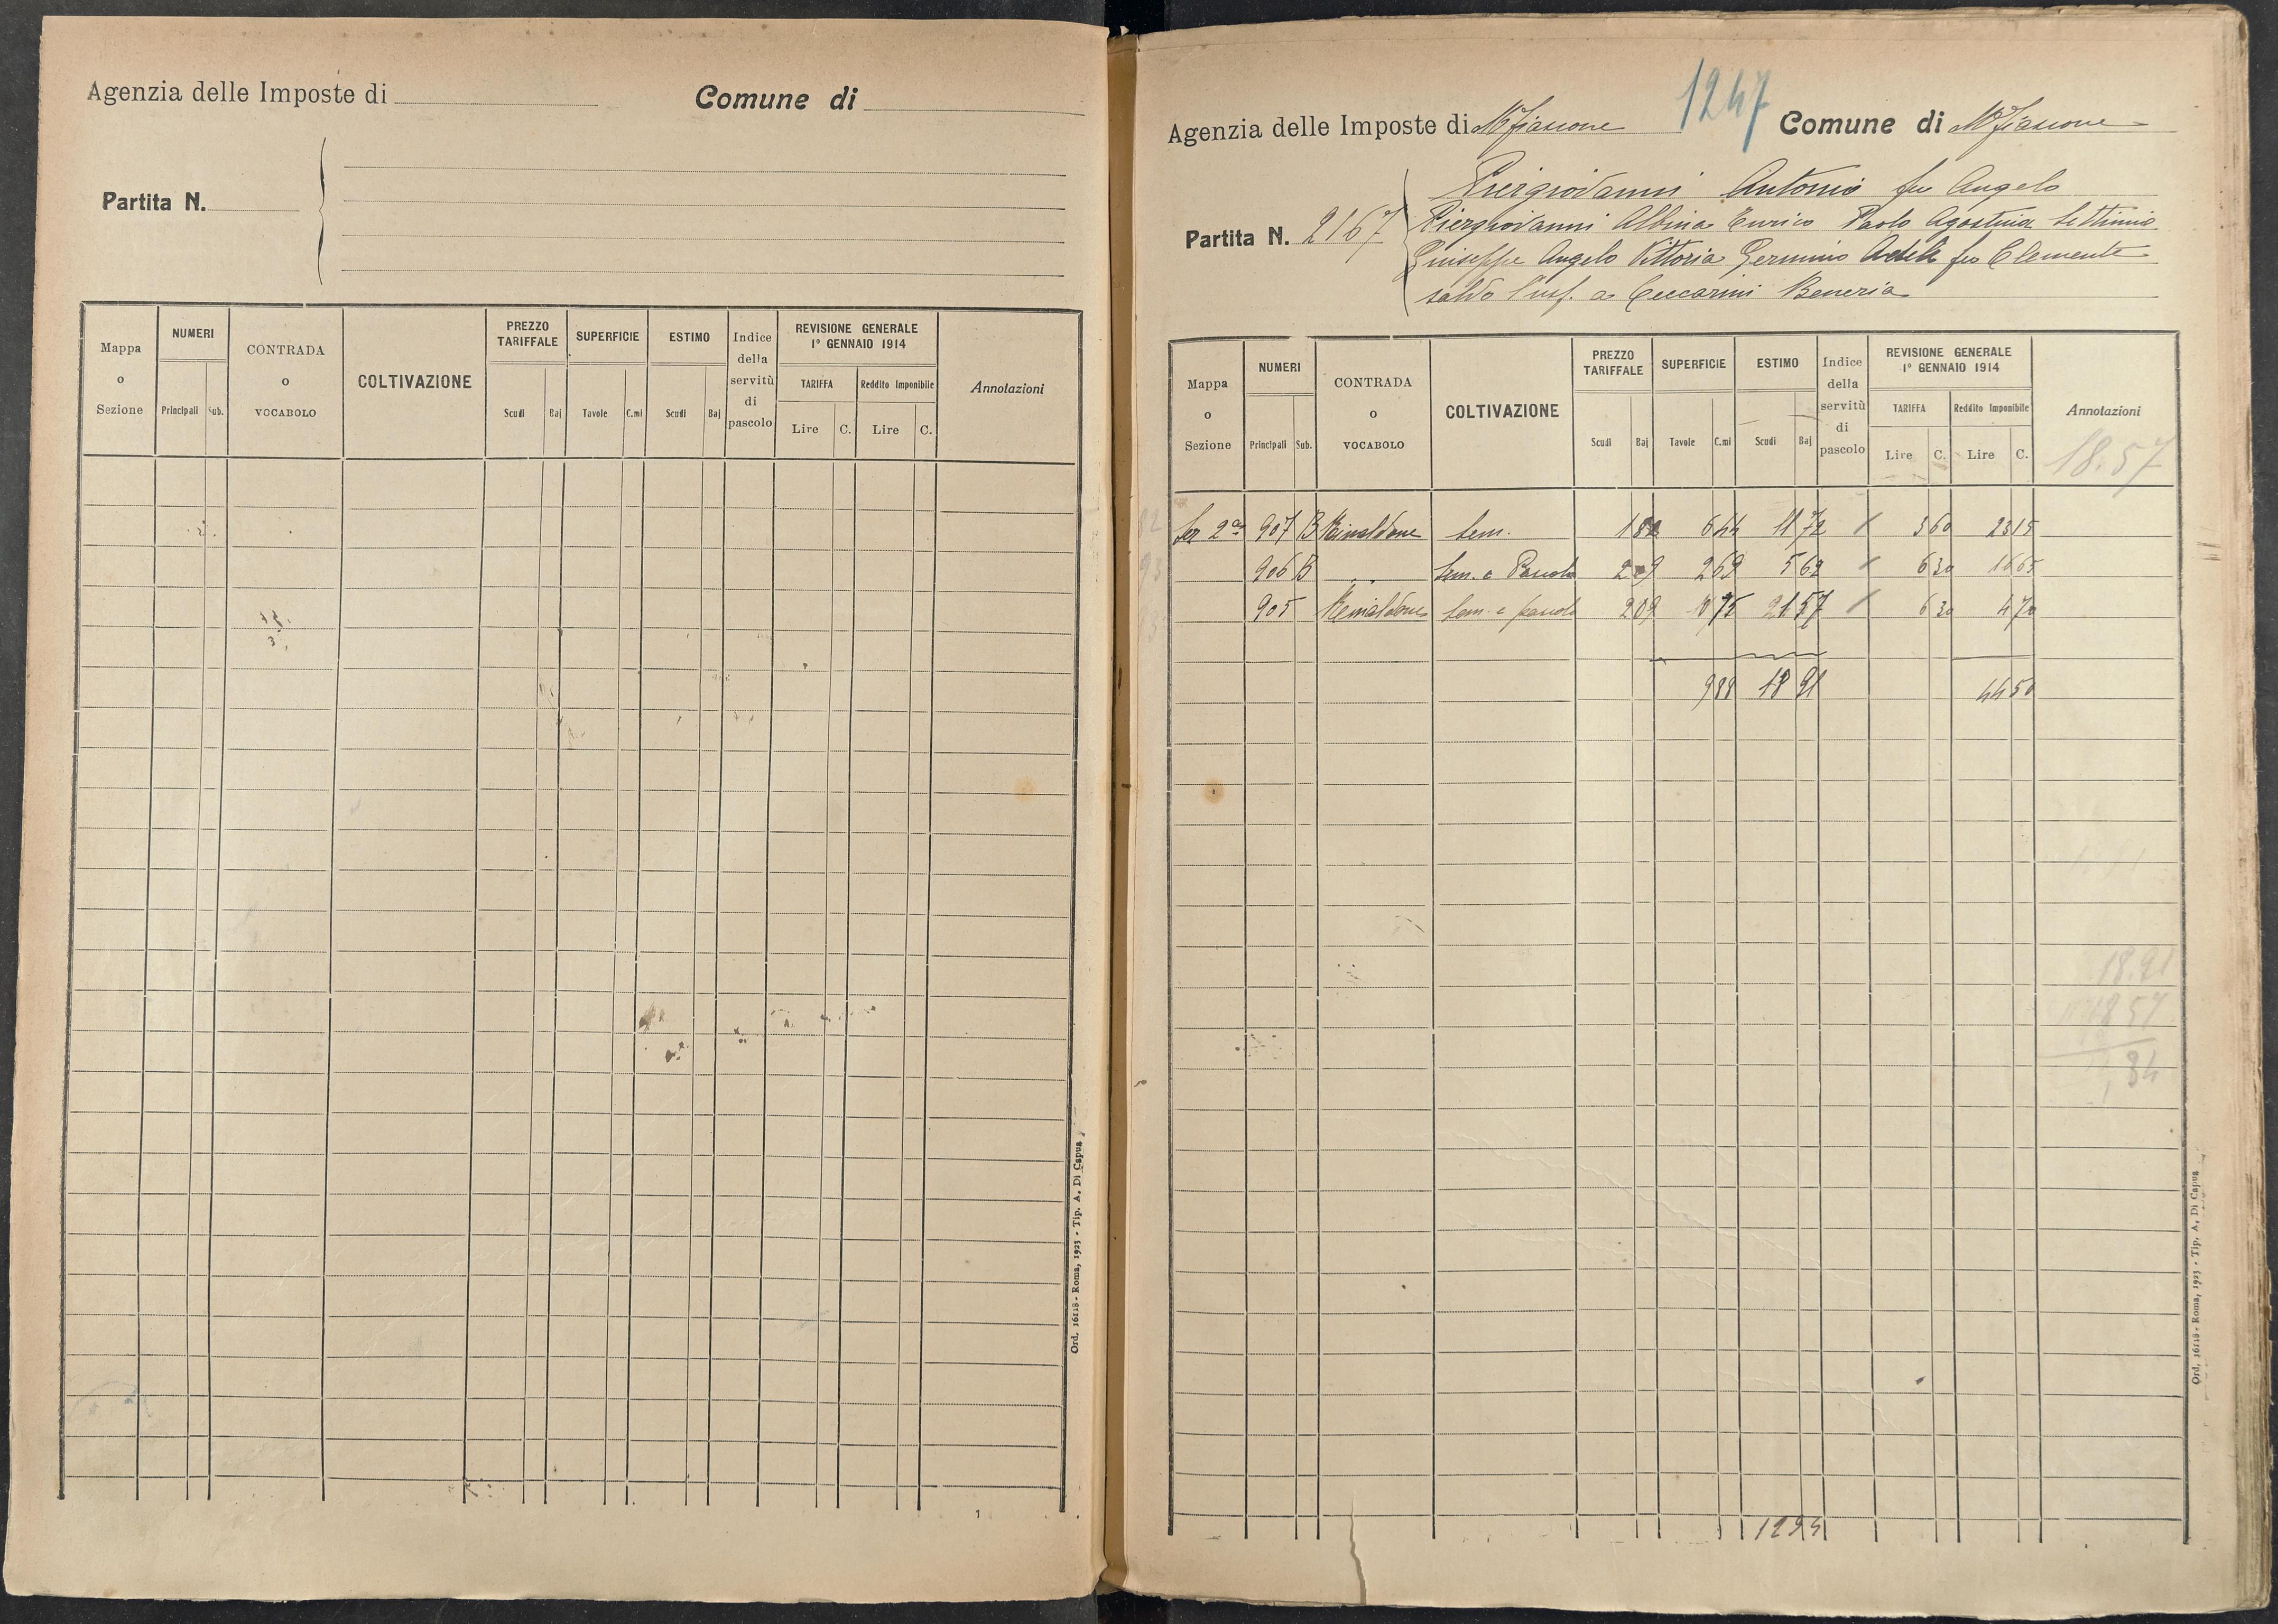 Agenzia delle Imposte di
Comune di
Partita N.
Mappa o Sezione
NUMERI
Principali
Sub.
CONTRADA o VOCABOLO
COLTIVAZIONE
PREZZO TARIFFALE
Scudi
Baj
SUPERFICIE
Tavole
C.mi
ESTIMO
Scudi
Baj
Indice della servitù di pascolo
REVISIONE GENERALE
1° GENNAIO 1914
TARIFFA
Lire
C.
Reddito Imponibile
Lire
C.
Annotazioni
Ord. 16118 - Roma, 1923 - Tip. A. Di Capua
1247
Agenzia delle Imposte di Mfiascone
Comune di Mfiascone
Partita N. 2167
Piergiovanni Antonio fu Angelo
Piergiovanni Albina Enrico Paolo Agostina Settimio
Giuseppe Angelo Vittoria Germinio Adele fu Clemente
saldo l'usf. a Ceccarini Beneria
Mappa o Sezione
NUMERI
Principali
Sub.
CONTRADA o VOCABOLO
COLTIVAZIONE
PREZZO TARIFFALE
Scudi
Baj
SUPERFICIE
Tavole
C.mi
ESTIMO
Scudi
Baj
Indice della servitù di pascolo
REVISIONE GENERALE
1° GENNAIO 1914
TARIFFA
Lire
C.
Reddito Imponibile
Lire
C.
Annotazioni
18.57
Sez 2a 907 B Rinaldone Sem. 1 82 6 44 11 72 3 60 23 15
906 B " Sem. e 2 09 2 69 5 62 6 30 16 65
905 Rinaldone Sem. e 2 09 6 30 4 70
9 88 18 91 44 50
18.91
18 57
34
Ord. 16118 - Roma, 1923 - Tip. A. Di Capua